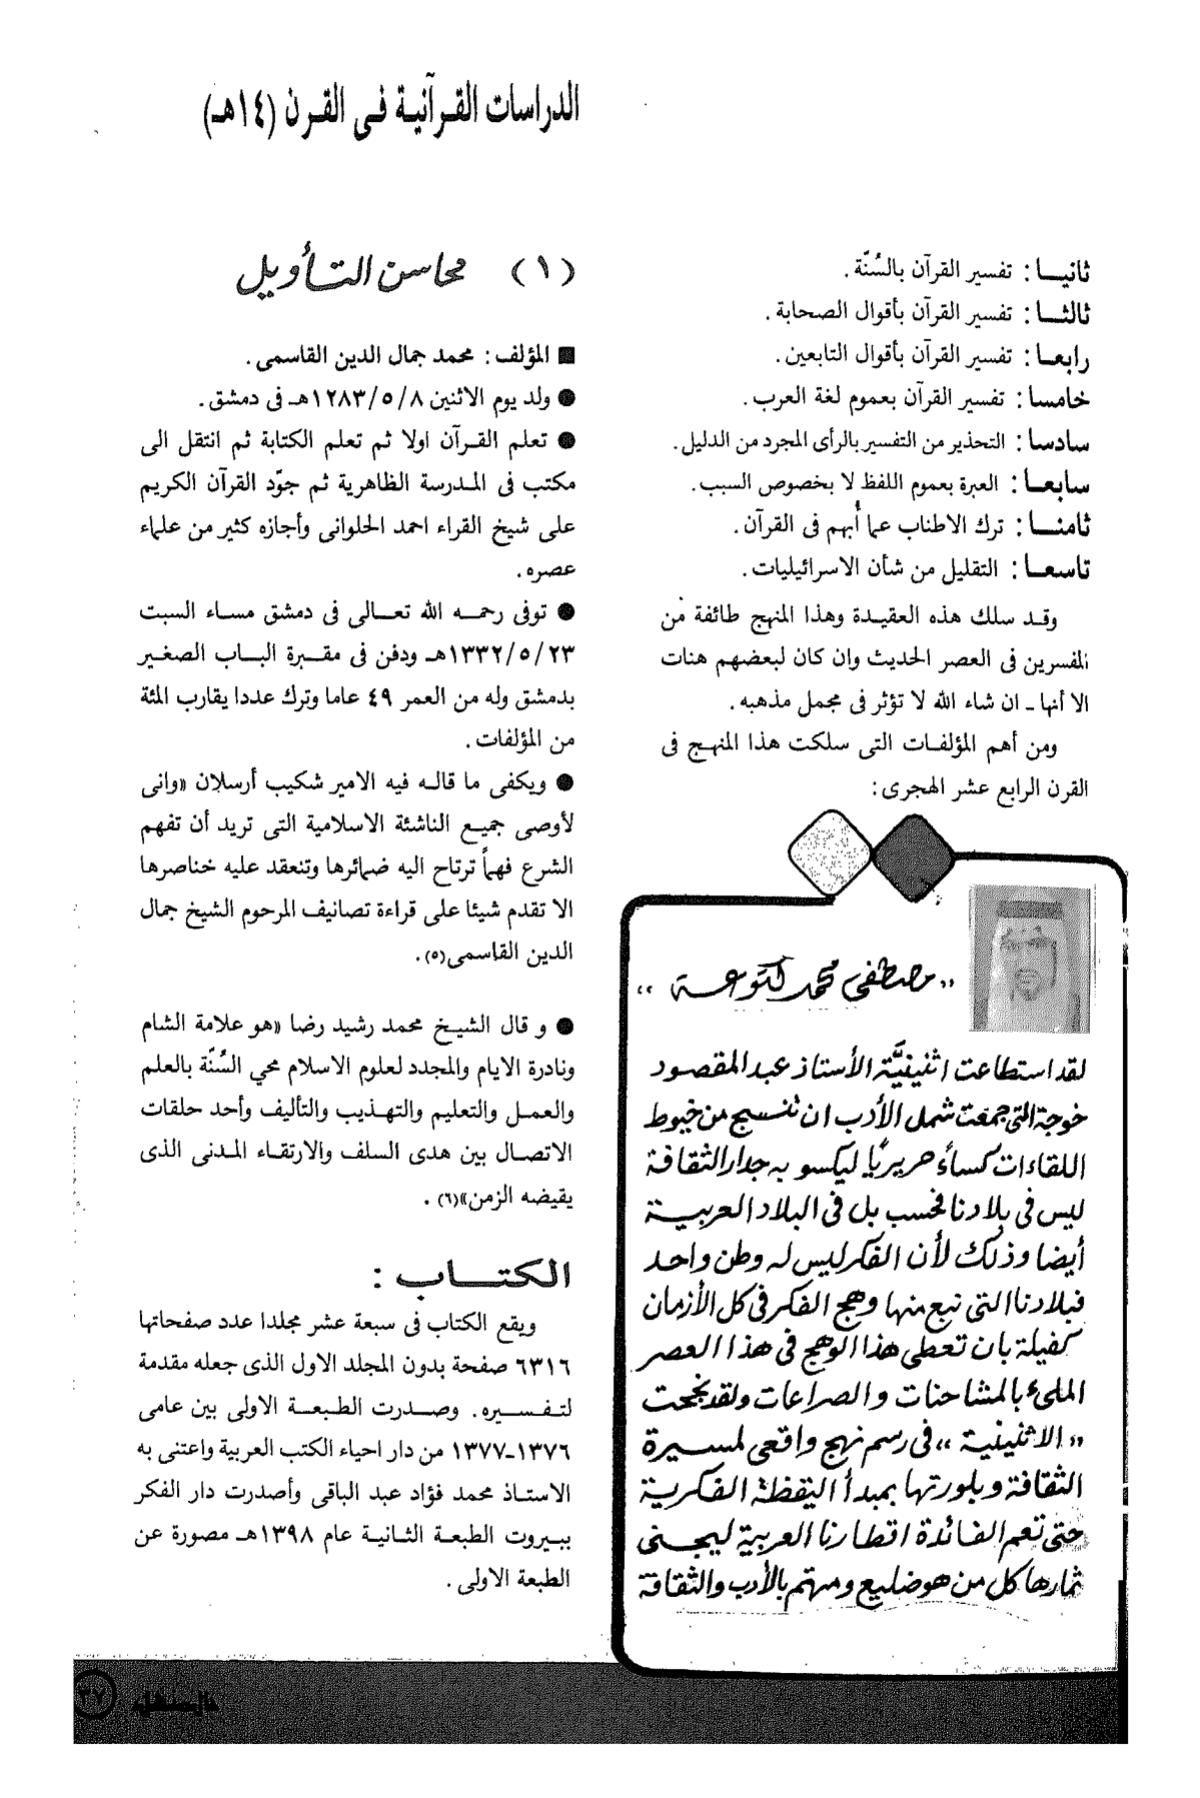 الدراسات القرآنية فى القرن (١٤هـ)
ثانيا: تفسير القرآن بالسُنّة.
ثالثا: تفسير القرآن بأقوال الصحابة.
رابعا: تفسير القرآن بأقوال التابعين.
خامسا: تفسير القرآن بعموم لغة العرب.
سادسا: التحذير من التفسير بالرأى المجرد من الدليل.
سابعا: العبرة بعموم اللفظ لا بخصوص السبب.
ثامنا: ترك الاطناب عما أُبهم فى القرآن.
تاسعا: التقليل من شأن الاسرائيليات.
وقد سلك هذه العقيدة وهذا المنهج طائفة من
المفسرين فى العصر الحديث وان كان لبعضهم هنات
الا أنها ـ ان شاء الله لا تؤثر فى مجمل مذهبه.
ومن أهم المؤلفات التى سلكت هذا المنهج فى
القرن الرابع عشر الهجرى:
«مصطفى محمد كتوعة»
لقد استطاعت اثنينيَّة الأستاذ عبد المقصود
خوجة التى جمعت شمل الأدب ان تنسج من خيوط
اللقاءات كساءً حريريًا ليكسو به جدار الثقافة
ليس فى بلادنا فحسب بل فى البلاد العربية
أيضا وذلك لأن الفكر ليس له وطن واحد
فبلادنا التى نبع منها وهج الفكر فى كل الأزمان
كفيلة بان تعطى هذا الوهج فى هذا العصر
الملىء بالمشاحنات والصراعات ولقد نجحت
«الاثنينية» فى رسم نهج واقعى لمسيرة
الثقافة وبلورتها بمبدأ اليقظة الفكرية
حتى تعم الفائدة اقطارنا العربية ليجنى
ثمارها كل من هو ضليع ومهتم بالأدب والثقافة
(١) محاسن التأويل
■ المؤلف: محمد جمال الدين القاسمى.
● ولد يوم الاثنين ١٢٨٣/٥/٨هـ فى دمشق.
● تعلم القرآن اولا ثم تعلم الكتابة ثم انتقل الى
مكتب فى المدرسة الظاهرية ثم جوّد القرآن الكريم
على شيخ القراء احمد الحلوانى وأجازه كثير من علماء
عصره.
● توفى رحمه الله تعالى فى دمشق مساء السبت
١٣٣٢/٥/٢٣هـ ودفن فى مقبرة الباب الصغير
بدمشق وله من العمر ٤٩ عاما وترك عددا يقارب المئة
من المؤلفات.
● ويكفى ما قاله فيه الامير شكيب أرسلان «وانى
لأوصى جميع الناشئة الاسلامية التى تريد أن تفهم
الشرع فهماً ترتاح اليه ضمائرها وتنعقد عليه خناصرها
الا تقدم شيئا على قراءة تصانيف المرحوم الشيخ جمال
الدين القاسمى(٥).
● و قال الشيخ محمد رشيد رضا «هو علامة الشام
ونادرة الايام والمجدد لعلوم الاسلام محي السُنّة بالعلم
والعمل والتعليم والتهذيب والتأليف وأحد حلقات
الاتصال بين هدى السلف والارتقاء المدنى الذى
يقيضه الزمن»(٦).
الكتاب:
ويقع الكتاب فى سبعة عشر مجلدا عدد صفحاتها
٦٣١٦ صفحة بدون المجلد الاول الذى جعله مقدمة
لتفسيره. وصدرت الطبعة الاولى بين عامى
١٣٧٦ـ١٣٧٧ من دار احياء الكتب العربية واعتنى به
الاستاذ محمد فؤاد عبد الباقى وأصدرت دار الفكر
ببيروت الطبعة الثانية عام ١٣٩٨هـ مصورة عن
الطبعة الاولى.
٣٧